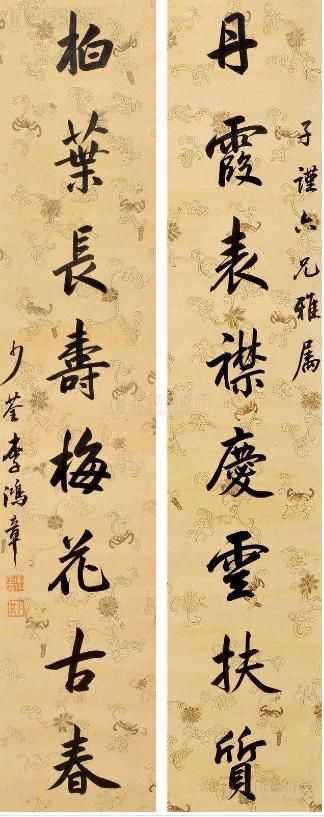 子謹六兄雅屬
丹霞表襟慶雲扶質
柏葉長壽梅花古春
少荃李鴻章